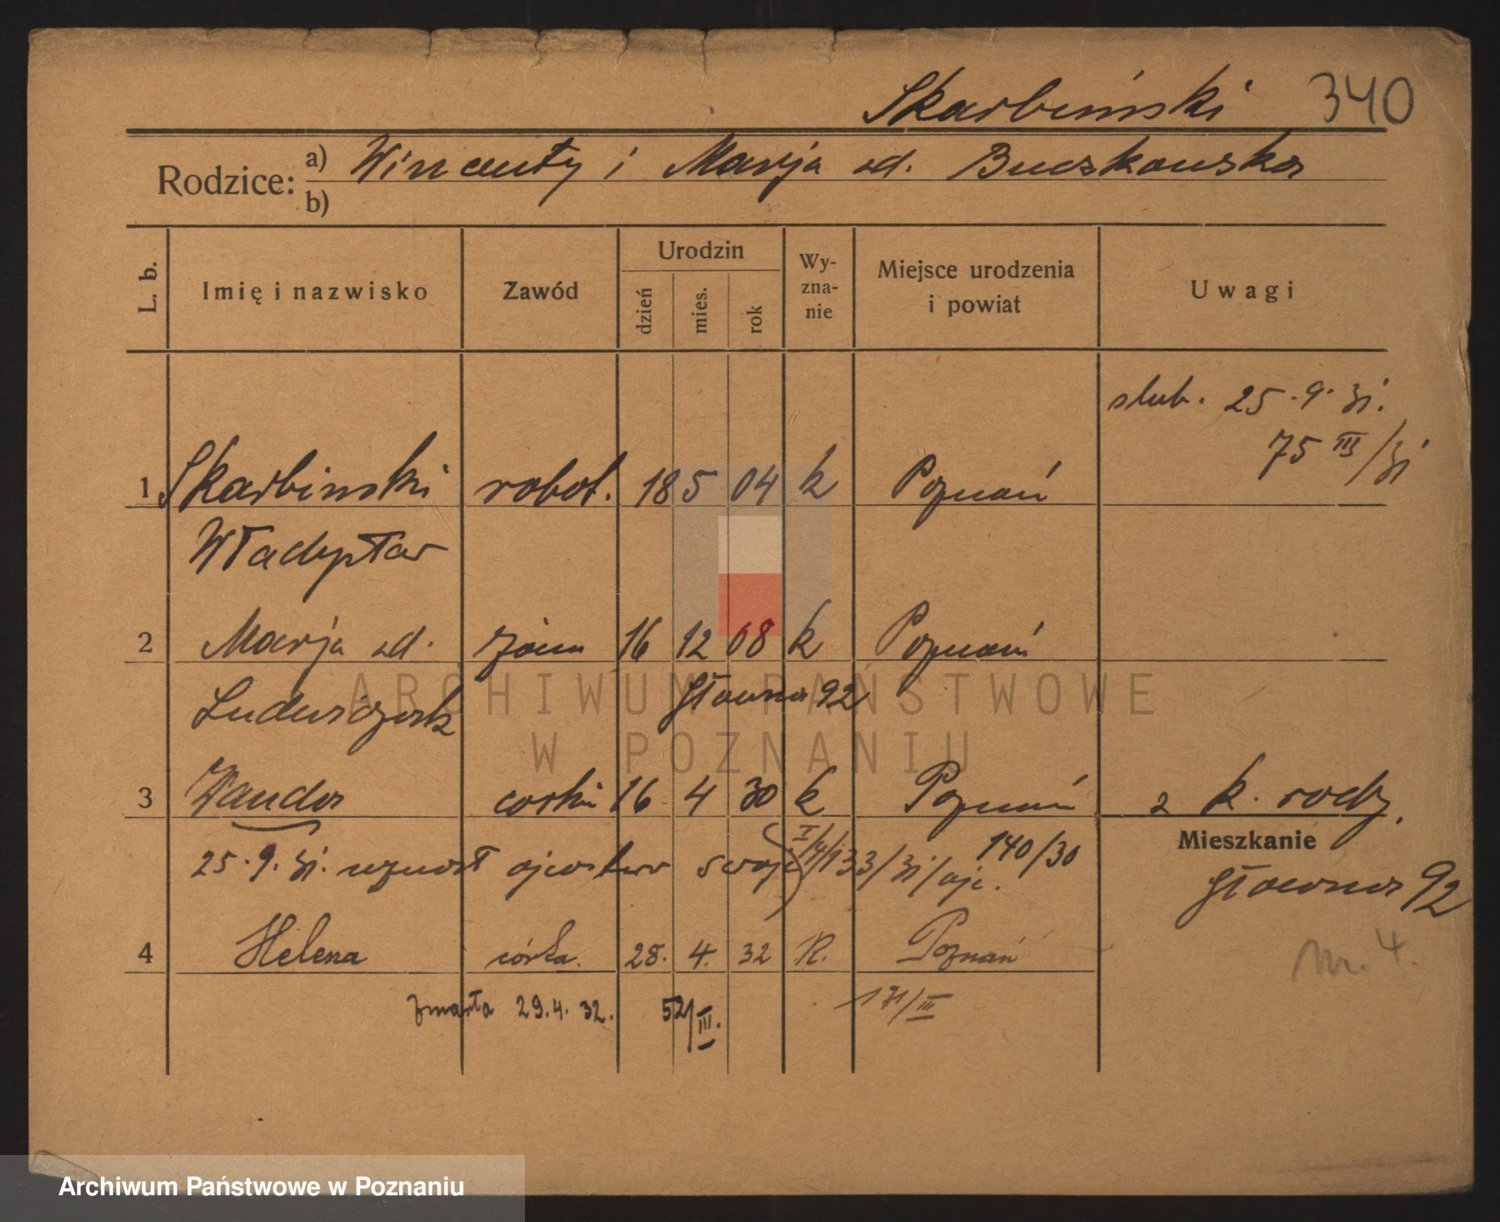 Skarbiński 340
Rodzice: a) Wincenty i Marja zd. Buczkowska
b)
L. b. Imię i nazwisko Zawód Urodzin dzień mies. rok Wy-zna-nie Miejsce urodzenia i powiat Uwagi
slub. 25.9.31.
75 III/31
1 Skarbinski robot. 18 5 04 k Poznań
Władysław
2 Marja zd. żona 16 12 08 k Poznań
Ludwiczak Główna 92
3 Wanda corka 16 4 30 k Poznań z k. rodz.
Mieszkanie
25.9.31. uznał ojcostwo 33/31/ojc. 140/30
Główna 92
4 Helena córka. 28. 4. 32 R. Poznań
nr. 4.
zmarła 29.4.32. 52/III. 171/III
ARCHIWUM PAŃSTWOWE
W POZNANIU
Archiwum Państwowe w Poznaniu